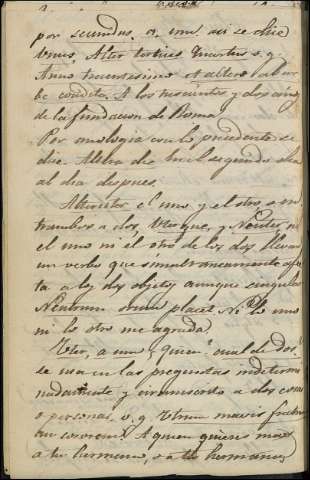 por secundus, v. unus. asi se dice
Unus, Alter tertius, Quartus v. g.
Anno trecentesimo et altero ab ur-
be condita. A los trescientos y dos años
de la fundacion de Roma
Por analogia con lo precedente se
dice. Altera die en el segundo dia
al dia despues.
Alteruter el uno y el otro o en-
trambos a dos, Uterque, y Neuter ni
el uno ni el otro de los dos, llevan
un verbo que simultaneamente afec-
ta a los dos objetos aunque singular
Neutrum mihi placet Ni lo uno
ni lo otro me agrada
Uter, a um, quien? cual de dos?
se usa en las preguntas indetermi
nadamente y circunscrito a dos cosas
o personas, v. g. Utrum mavis fratrem
an sororem? A quien quieres mas
a tu hermano, o a tu hermana?